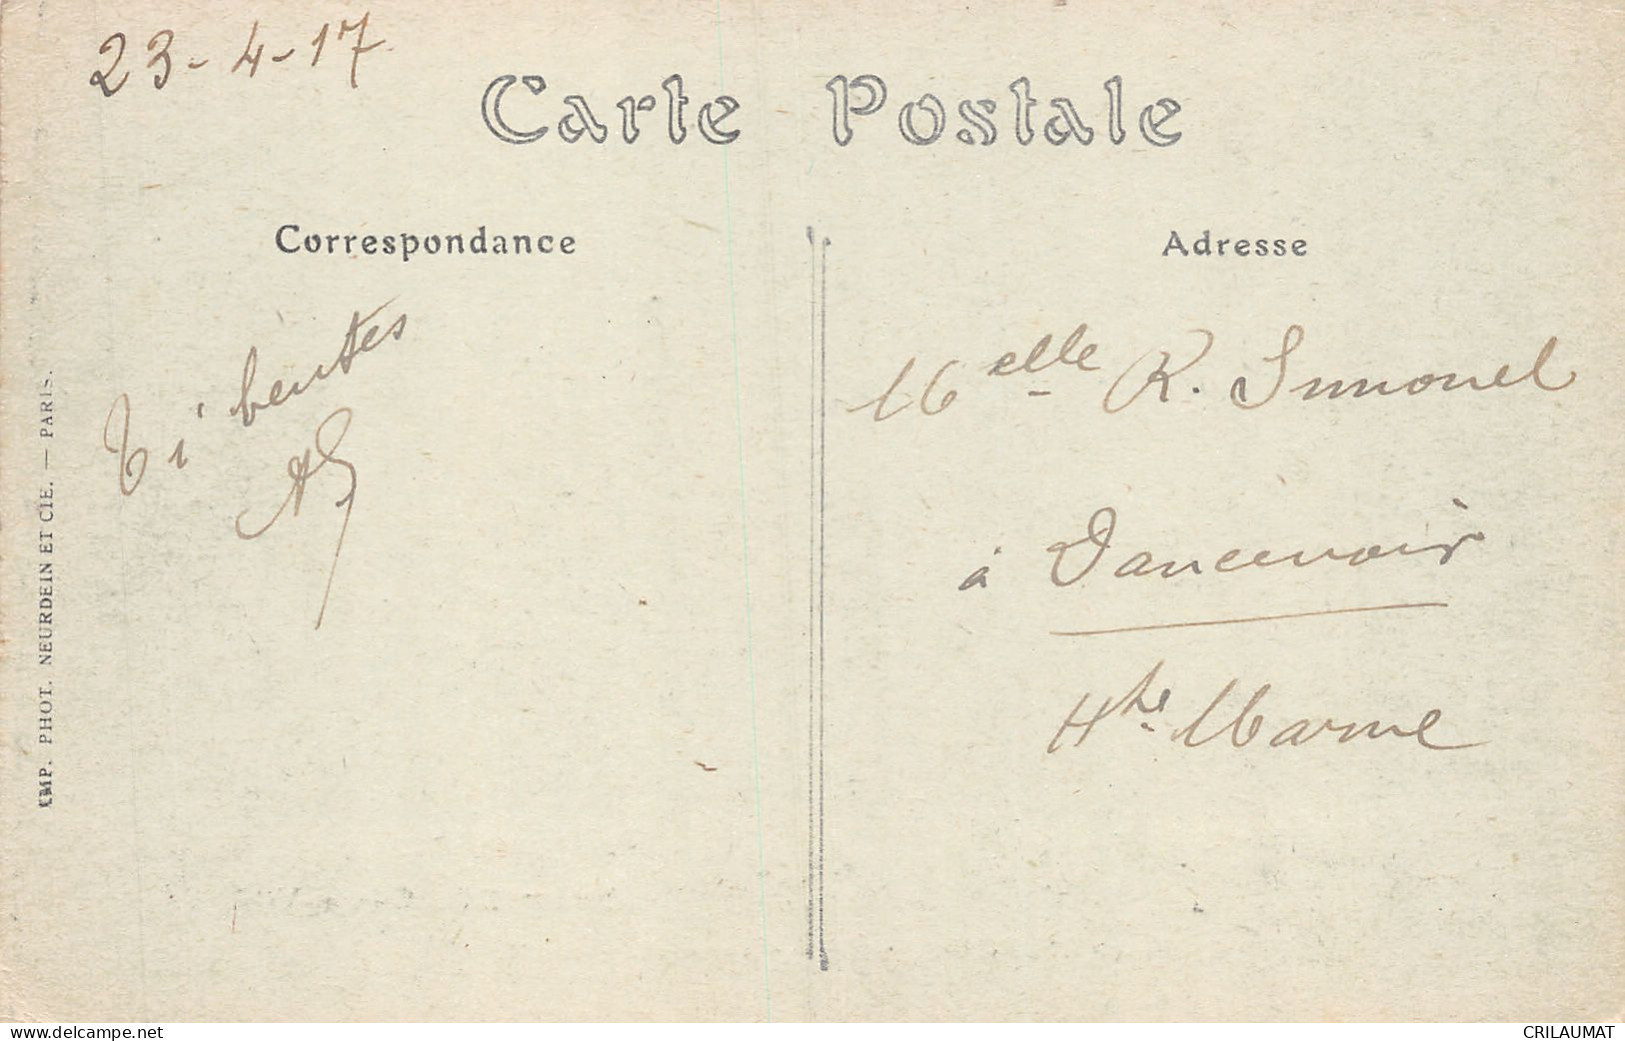 23-4-17
Carte Postale
Correspondance
Adresse
bentes
Melle R. Simonel
à Dancevoir
Hte Marne
IMP. PHOT. NEURDEIN ET CIE. — PARIS.
www.delcampe.net
CRILAUMAT